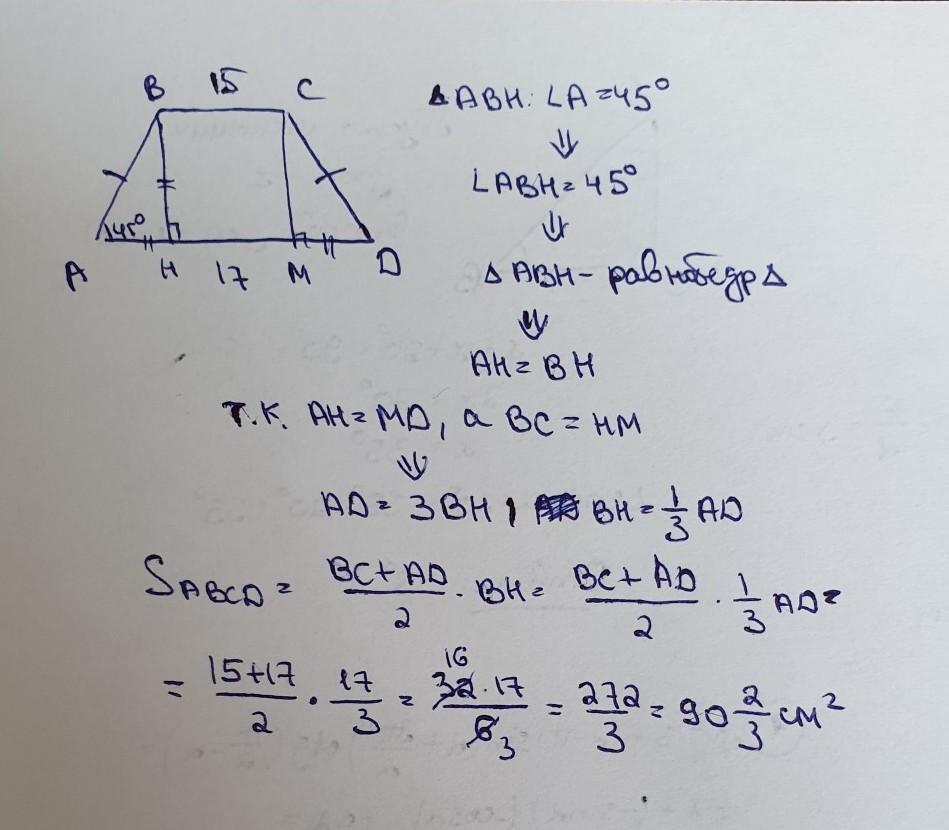 B 15 C
A 45° H 17 M D
△ABH: ∠A = 45°
⇓
∠ABH = 45°
⇓
△ ABH - равнобедр △
⇓
AH = BH
т.к. AH = MD, а BC = HM
⇓
AD = 3BH, BH = 1/3 AD
S ABCD = (BC + AD)/2 · BH = (BC + AD)/2 · 1/3 AD =
= (15+17)/2 · 17/3 = (32 16 · 17)/(6 3) = 272/3 = 90 2/3 см²